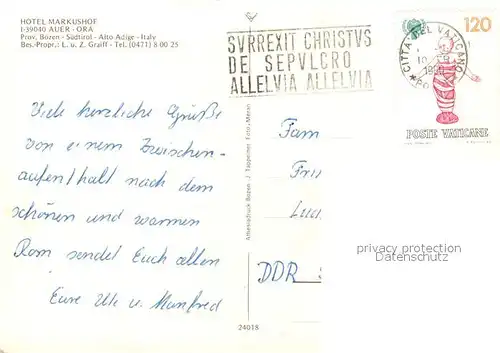 HOTEL MARKUSHOF
I-39040 AUER - ORA
Prov. Bozen - Südtirol - Alto Adige - Italy
Bes.-Propr.: L. u. Z. Graiff - Tel. (0471) 8 00 25
SVRREXIT CHRISTVS
DE SEPVLCRO
ALLELVIA ALLELVIA
CITTA' DEL VATICANO
120
POSTE VATICANE
Viele herzliche Grüße
von einem Zwischen-
aufenthalt nach dem
schönen und warmen
Rom sendet Euch allen
Eure Ute u. Manfred
Athesiadruck Bozen J. Tappeiner Foto-Meran
24018
Fam
DDR
privacy protection
Datenschutz